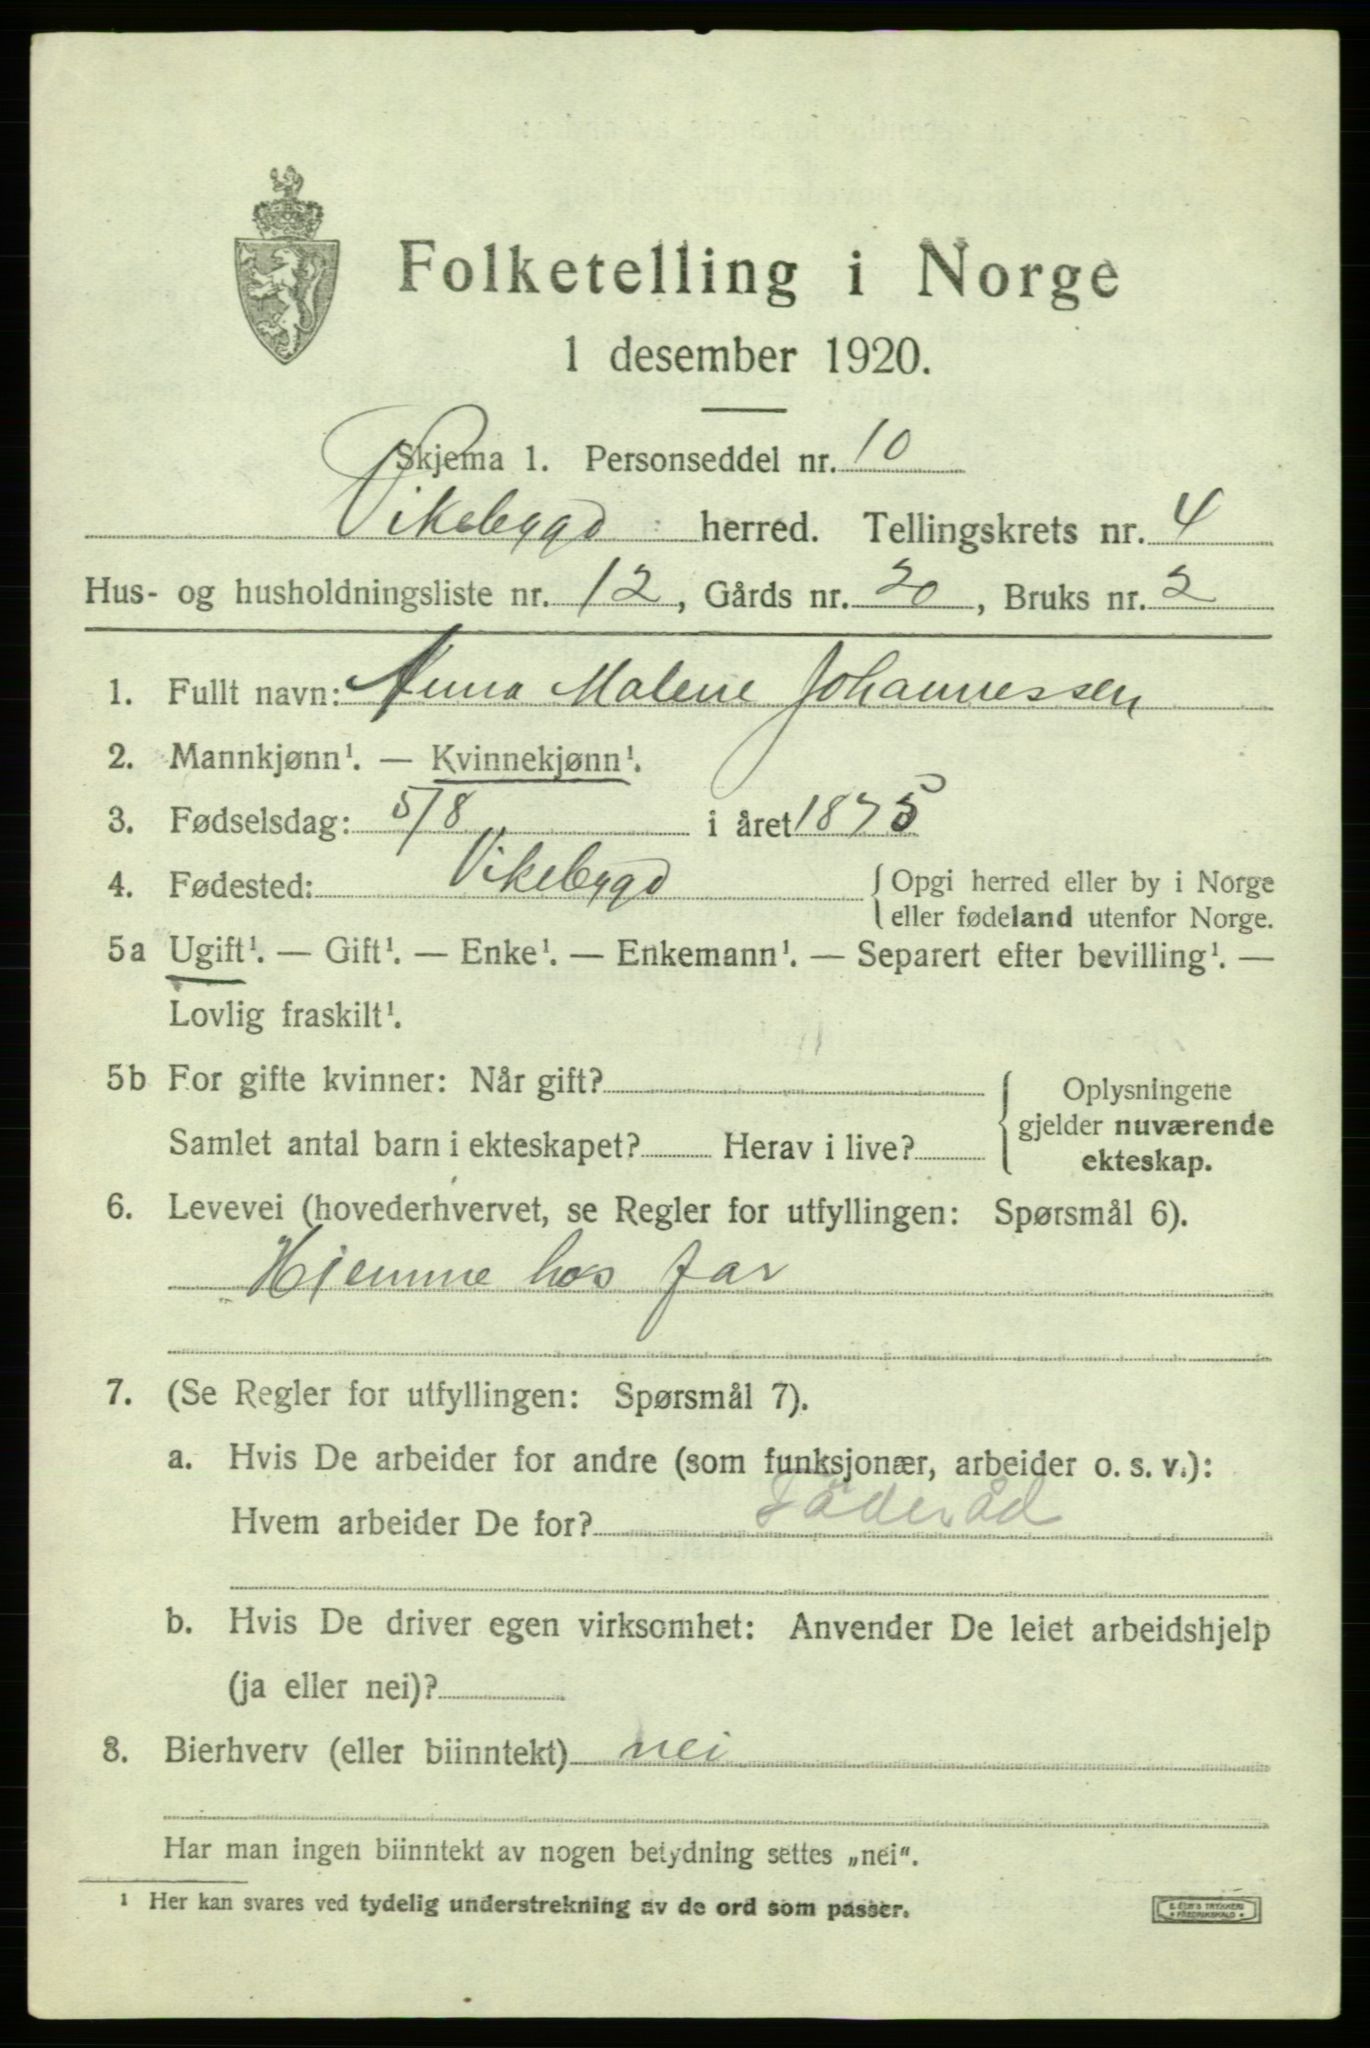 Folketelling i Norge
1 desember 1920.
Skjema 1. Personseddel nr. 10
Vikebygd herred. Tellingskrets nr. 4
Hus- og husholdningsliste nr. 12, Gårds nr. 20, Bruks nr. 2
1. Fullt navn: Anna Malene Johannessen
2. Mannkjønn¹. — Kvinnekjønn¹.
3. Fødselsdag: 5/8 i året 1875
4. Fødested: Vikebygd { Opgi herred eller by i Norge
eller fødeland utenfor Norge.
5a Ugift¹. — Gift¹. — Enke¹. — Enkemann¹. — Separert efter bevilling¹. —
Lovlig fraskilt¹.
5b For gifte kvinner: Når gift?
Samlet antal barn i ekteskapet? Herav i live?
{ Oplysningene
gjelder nuværende
ekteskap.
6. Levevei (hovederhvervet, se Regler for utfyllingen: Spørsmål 6).
Hjemme hos far
7. (Se Regler for utfyllingen: Spørsmål 7).
a. Hvis De arbeider for andre (som funksjonær, arbeider o. s. v.):
Hvem arbeider De for? Föderåd
b. Hvis De driver egen virksomhet: Anvender De leiet arbeidshjelp
(ja eller nei)?
8. Bierhverv (eller biinntekt) nei
Har man ingen biinntekt av nogen betydning settes „nei“.
¹ Her kan svares ved tydelig understrekning av de ord som passer.